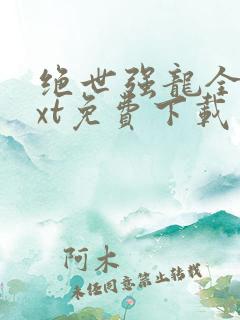 绝世强龍全
xt免費下載
阿木
未经同意禁止转载